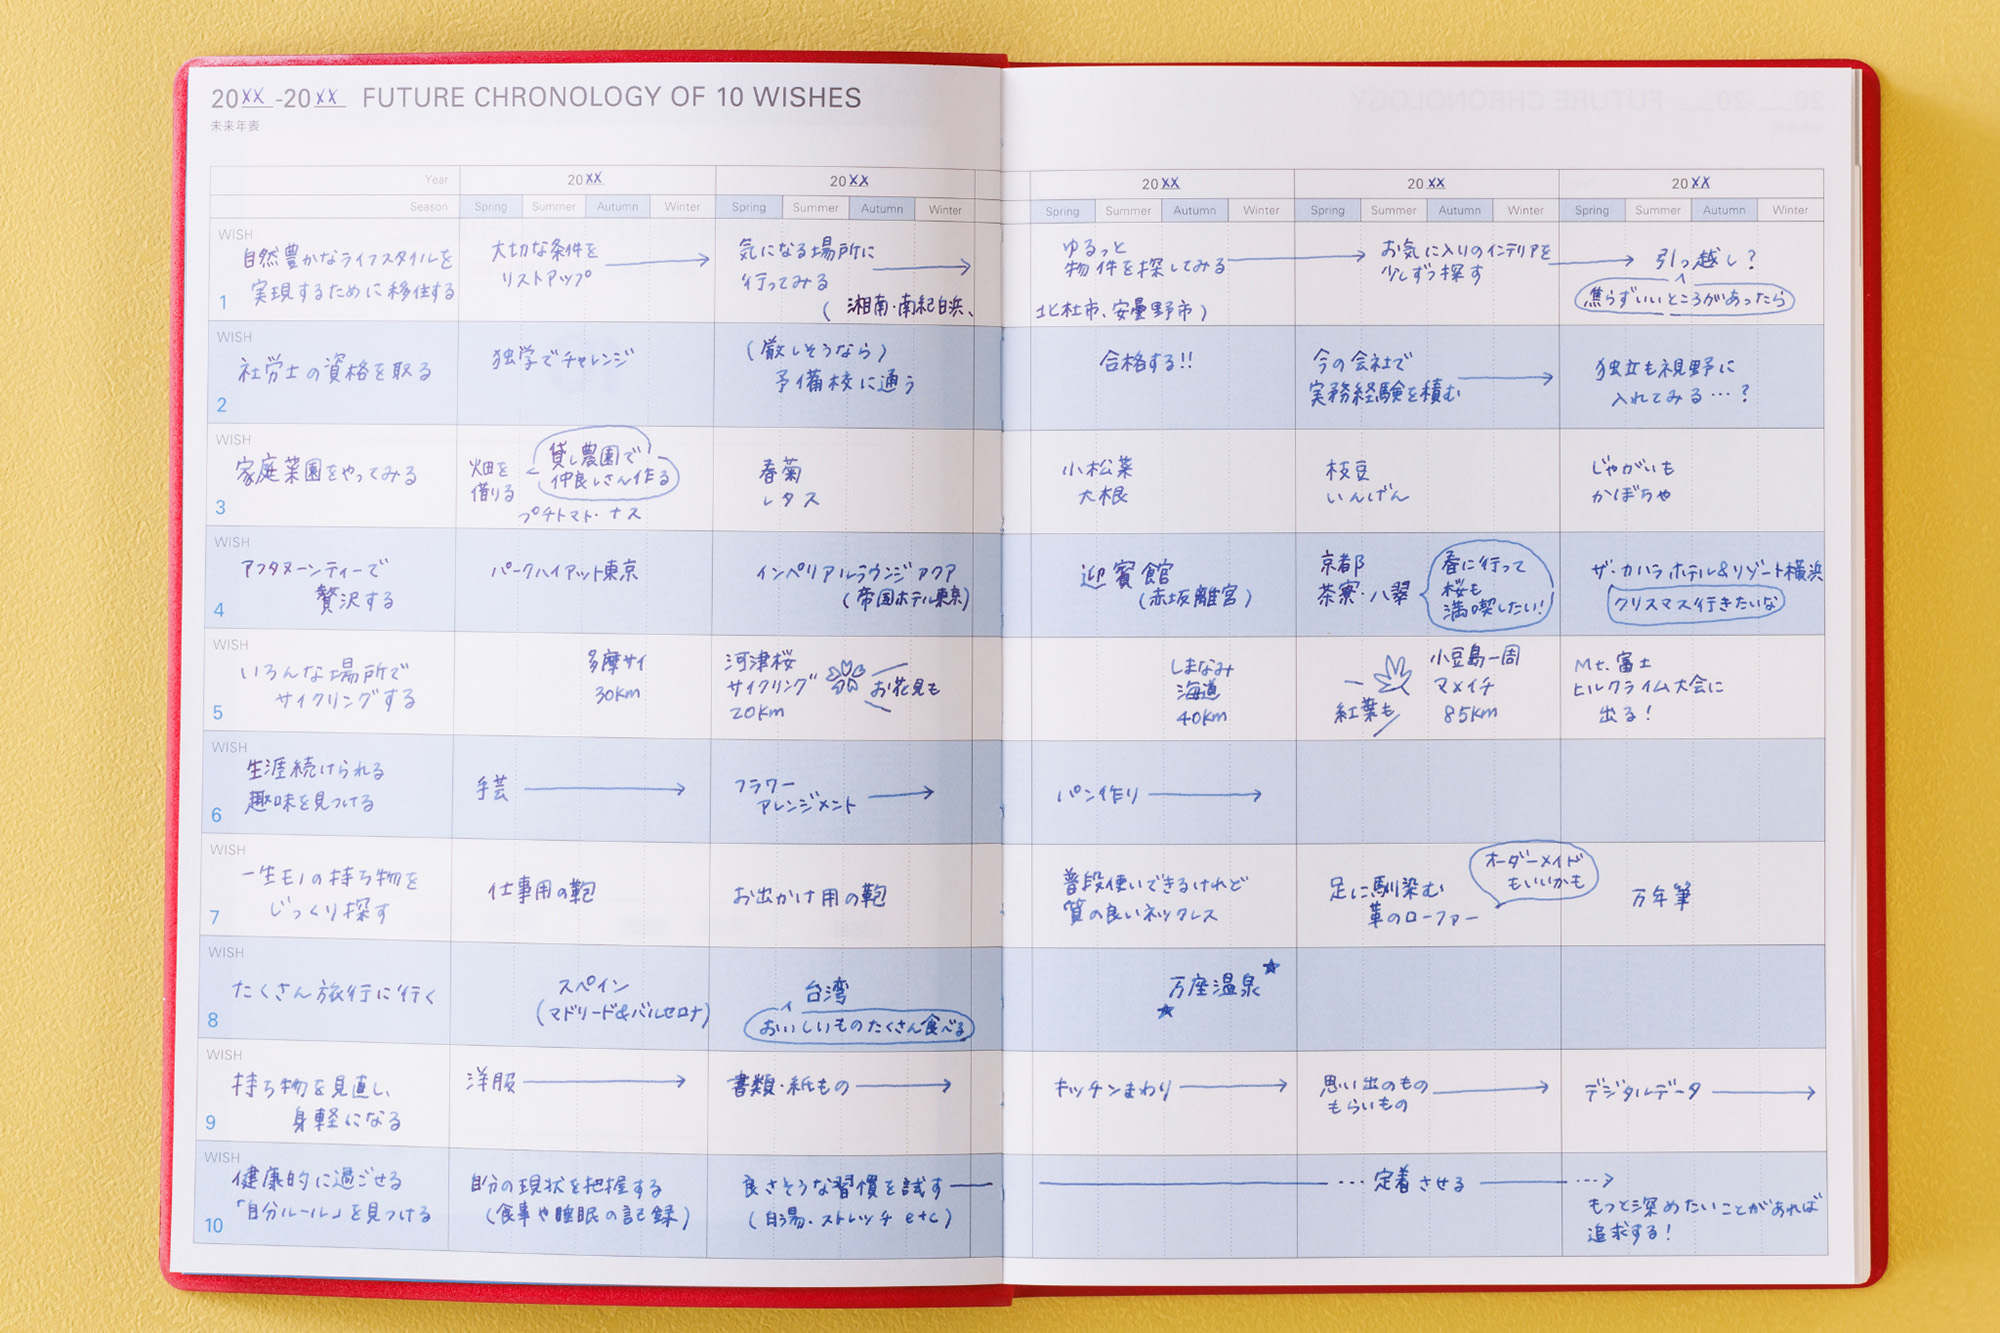 20XX-20XX FUTURE CHRONOLOGY OF 10 WISHES
未来年表
Year 20XX 20XX 20XX 20XX 20XX
Season Spring Summer Autumn Winter Spring Summer Autumn Winter Spring Summer Autumn Winter Spring Summer Autumn Winter Spring Summer Autumn Winter
WISH
1
自然豊かなライフスタイルを
実現するために移住する
大切な条件を
リストアップ
気になる場所に
行ってみる
(湘南・南紀白浜、
北杜市、安曇野市)
ゆるっと
物件を探してみる
お気に入りのインテリアを
少しずつ探す
引っ越し?
焦らずいいところがあったら
WISH
2
社労士の資格を取る
独学でチャレンジ
(厳しそうなら)
予備校に通う
合格する!!
今の会社で
実務経験を積む
独立も視野に
入れてみる…?
WISH
3
家庭菜園をやってみる
畑を
借りる
貸し農園で
仲良しさん作る
プチトマト・ナス
春菊
レタス
小松菜
大根
枝豆
いんげん
じゃがいも
かぼちゃ
WISH
4
アフタヌーンティーで
贅沢する
パークハイアット東京
インペリアルラウンジ アクア
(帝国ホテル東京)
迎賓館
(赤坂離宮)
京都
茶寮・八翠
春に行って
桜も
満喫したい!
ザ・カハラホテル&リゾート横浜
クリスマス行きたいな
WISH
5
いろんな場所で
サイクリングする
多摩サイ
30km
河津桜
サイクリング
20km
お花見も
しまなみ
海道
40km
紅葉も
小豆島一周
マメイチ
85km
Mt.富士
ヒルクライム大会に
出る!
WISH
6
生涯続けられる
趣味を見つける
手芸
フラワー
アレンジメント
パン作り
WISH
7
一生モノの持ち物を
じっくり探す
仕事用の鞄
お出かけ用の鞄
普段使いできるけれど
質の良いネックレス
足に馴染む
革のローファー
オーダーメイド
もいいかも
万年筆
WISH
8
たくさん旅行に行く
スペイン
(マドリード&バルセロナ)
台湾
おいしいものたくさん食べる
万座温泉
WISH
9
持ち物を見直し、
身軽になる
洋服
書類・紙もの
キッチンまわり
思い出のもの
もらいもの
デジタルデータ
WISH
10
健康的に過ごせる
「自分ルール」を見つける
自分の現状を把握する
(食事や睡眠の記録)
良さそうな習慣を試す
(白湯・ストレッチ etc)
定着させる
もっと深めたいことがあれば
追求する!